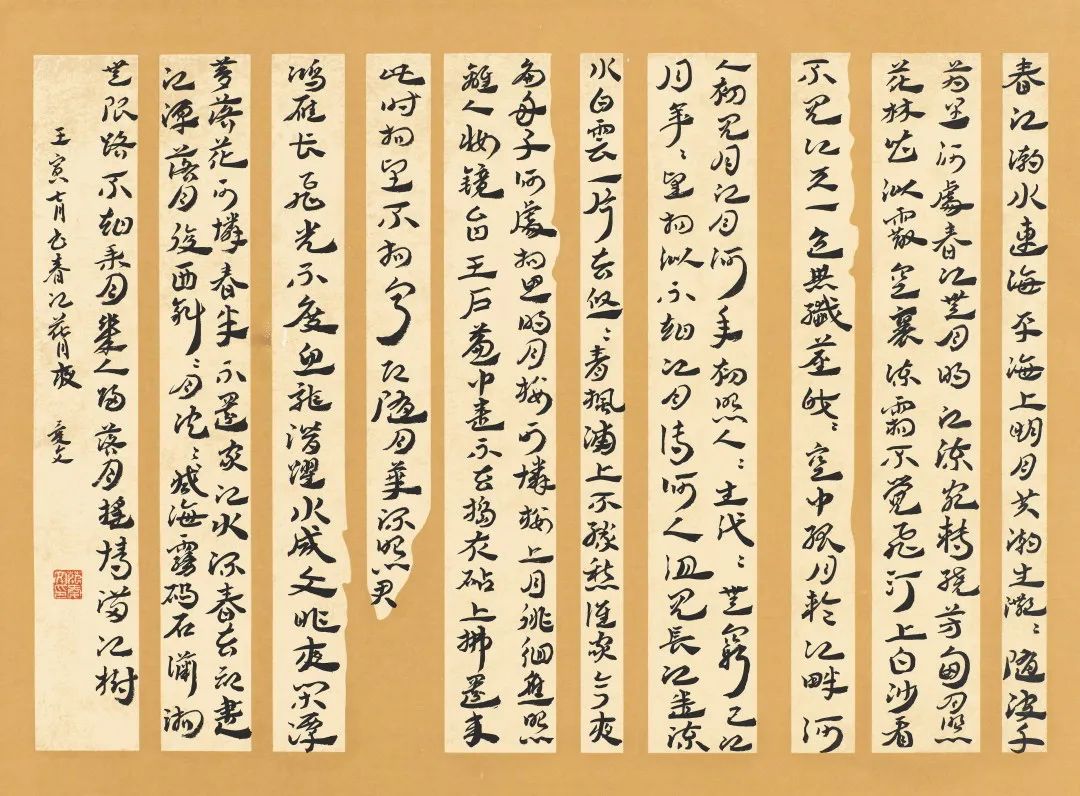 春江潮水連海平海上明月共潮生灩〻隨波千
萬里何處春江無月明江流宛轉繞芳甸月照
花林皆似霰空裏流霜不覺飛汀上白沙看
不見江天一色無纖塵皎〻空中孤月輪江畔何
人初見月江月何年初照人〻生代〻無窮已江
月年〻望相似不知江月待何人但見長江送流
水白雲一片去悠〻青楓浦上不勝愁誰家今夜
扁舟子何處相思明月樓可憐樓上月徘徊應照
離人妝鏡台玉戶簾中卷不去搗衣砧上拂還來
此時相望不相聞願隨月華流照君
鴻雁長飛光不度魚龍潛躍水成文昨夜閑潭
夢落花可憐春半不還家江水流春去欲盡
江潭落月復西斜〻月沈〻藏海霧碣石瀟湘
無限路不知乘月幾人歸落月搖情滿江樹
壬寅七月書春江花月夜